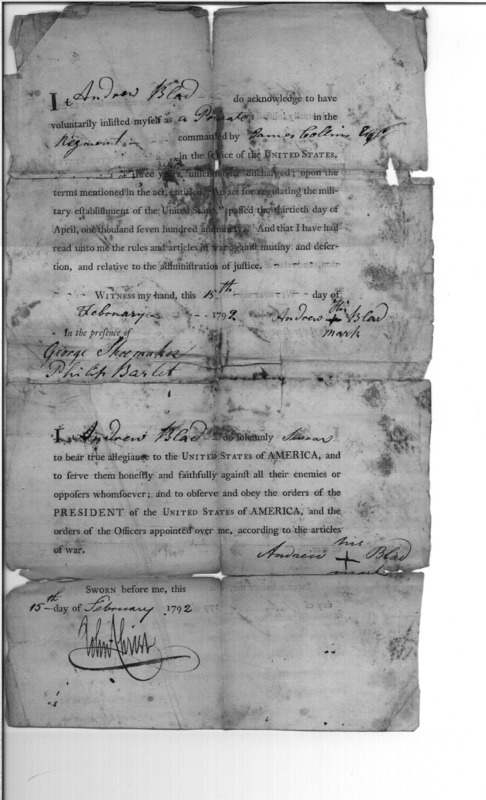 I, Andrew Blad do acknowledge to have
voluntarily inlisted myself as a Private in the
Regiment commanded by James Collin Esqr
in the service of the UNITED STATES,
of three years, unless sooner discharged; upon the
terms mentioned in the act, entitled, "An act for regulating the mili-
tary establishment of the United States," passed the thirtieth day of
April, one thousand seven hundred and ninety. And that I have had
read unto me the rules and articles of war against mutiny and deser-
tion, and relative to the administration of justice.
WITNESS my hand, this 15th day of
February 1792 Andrew his + mark Blad
In the presence of
George Shoemaker
Philip Barlet
I, Andrew Blad do solemnly swear
to bear true allegiance to the UNITED STATES OF AMERICA, and
to serve them honestly and faithfully against all their enemies or
opposers whomsoever; and to observe and obey the orders of the
PRESIDENT of the UNITED STATES OF AMERICA, and the
orders of the Officers appointed over me, according to the articles
of war.
Andrew his + mark Blad
SWORN before me, this
15th day of February 1792
John